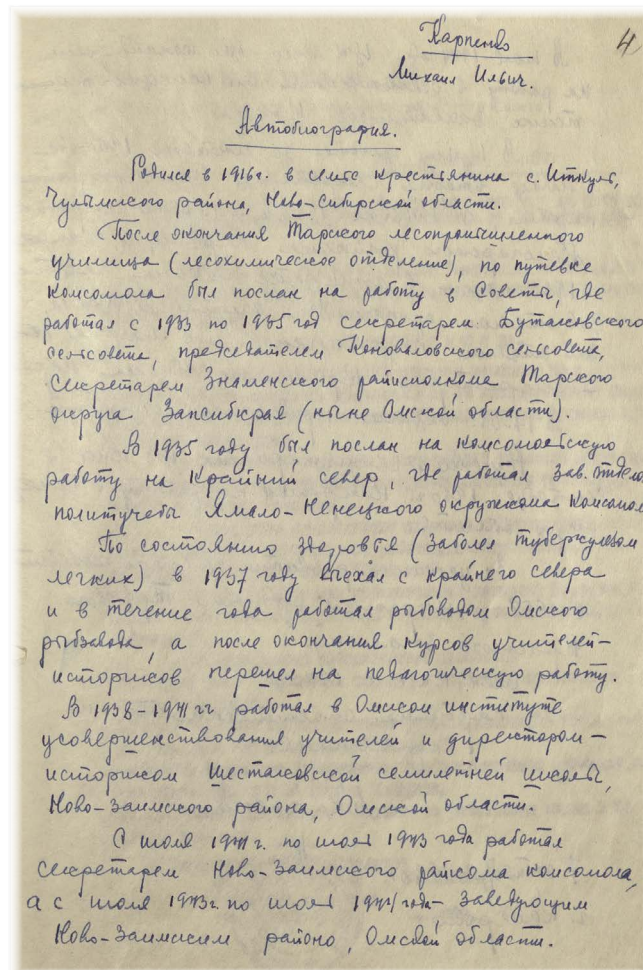 Карпенко
4
Михаил Ильич.
Автобиография.
Родился в 1916г. в семье крестьянина с. Иткуль,
Чулымского района, Ново-Сибирской области.
После окончания Тарского лесопромышленного
училища (лесохимическое отделение), по путевке
комсомола был послан на работу в Советы, где
работал с 1933 по 1935 год секретарем Бутаковского
сельсовета, председателем Коноваловского сельсовета,
секретарем Знаменского райисполкома Тарского
округа Запсибкрая (ныне Омской области).
В 1935 году был послан на комсомольскую
работу на Крайний север, где работал зав. отделом
политучебы Ямало-Ненецкого окружкома комсомол
По состоянию здоровья (заболел туберкулезом
легких) в 1937 году выехал с крайнего севера
и в течение года работал рыбоводом Омского
рыбзавода, а после окончания курсов учителей-
историков перешел на педагогическую работу.
В 1938-1941 гг работал в Омском институте
усовершенствования учителей и директором-
историком Шестаковской семилетней школы,
Ново-Заимского района, Омской области.
С июля 1941г. по июль 1943 года работал
секретарем Ново-Заимского райкома комсомола,
а с июля 1943г. по июль 1944 года- заведующим
Ново-Заимским районо, Омской области.